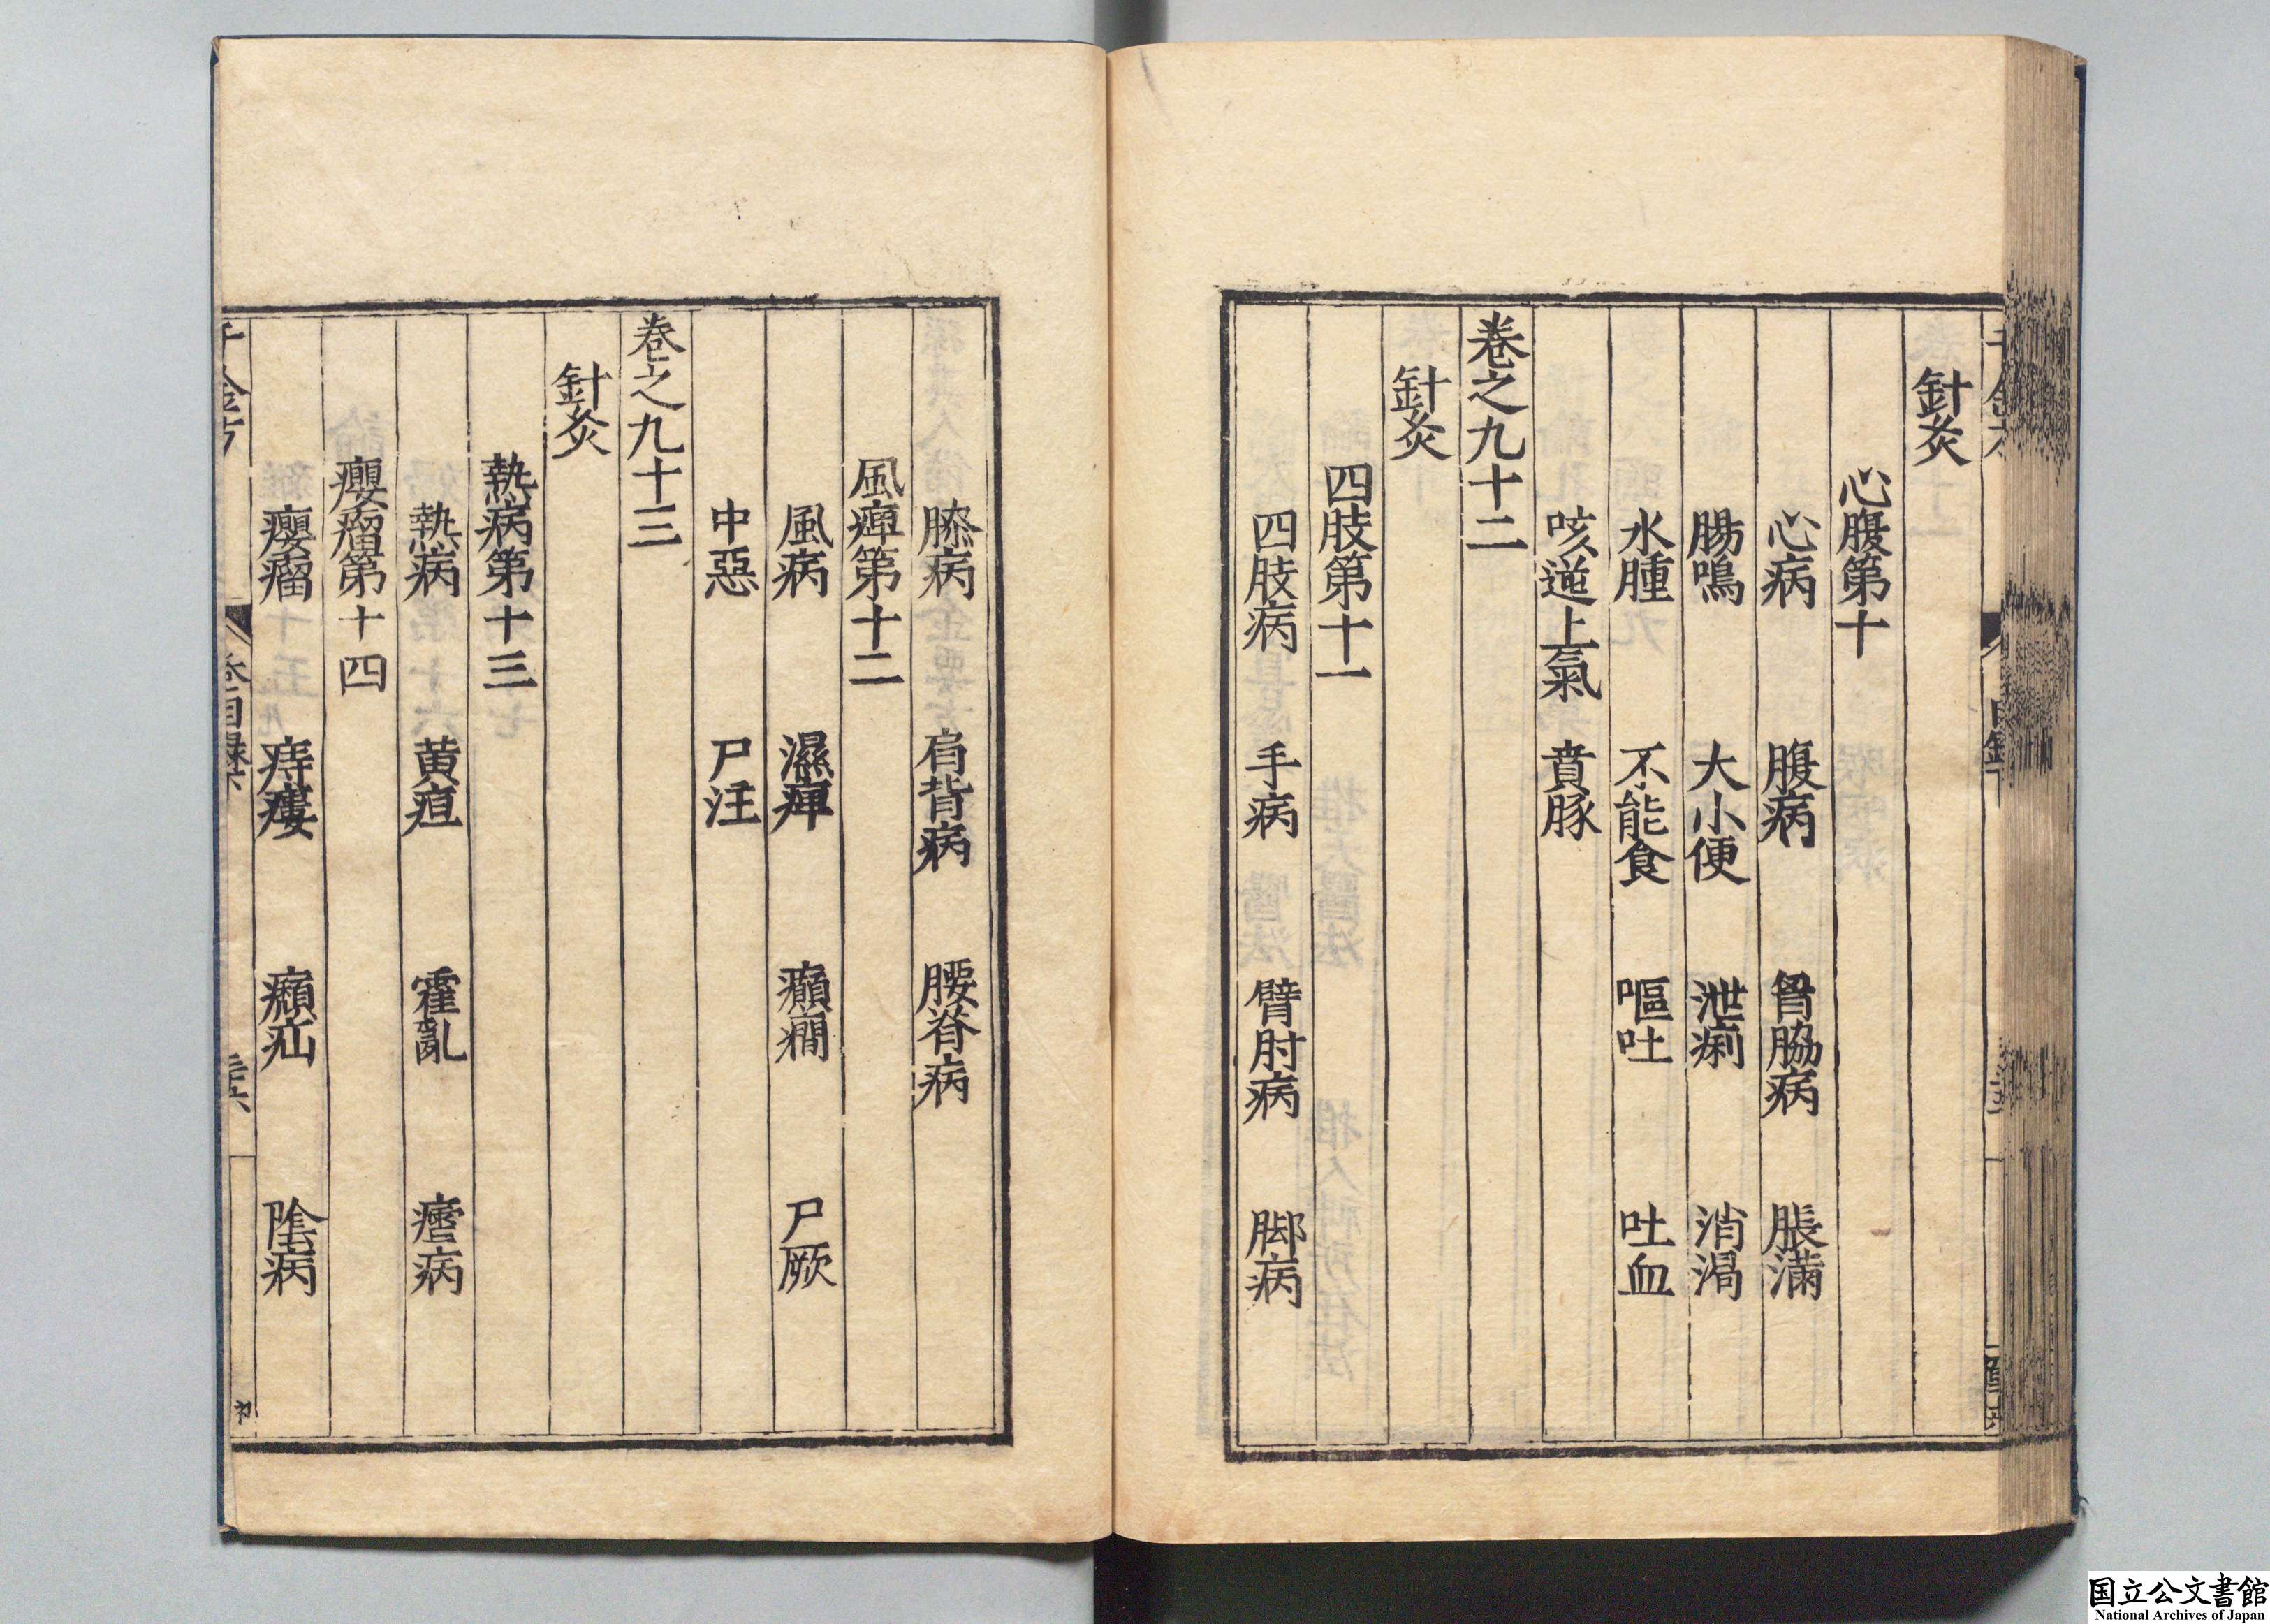 針灸
心腹第十
心病 腹病 胷脇病 脹滿
腸鳴 大小便 泄痢 消渴
水腫 不能食 嘔吐 吐血
咳逆上氣 賁豚
卷之九十二
針灸
四肢第十一
四肢病 手病 臂肘病 脚病
膝病 肩背病 腰脊病
風痺第十二
風病 濕痺 癲癇 尸厥
中惡 尸注
卷之九十三
針灸
熱病第十三
熱病 黄疸 霍亂 瘧病
癭瘤第十四
癭瘤 痔瘻 癩疝 陰病
国立公文書館
National Archives of Japan